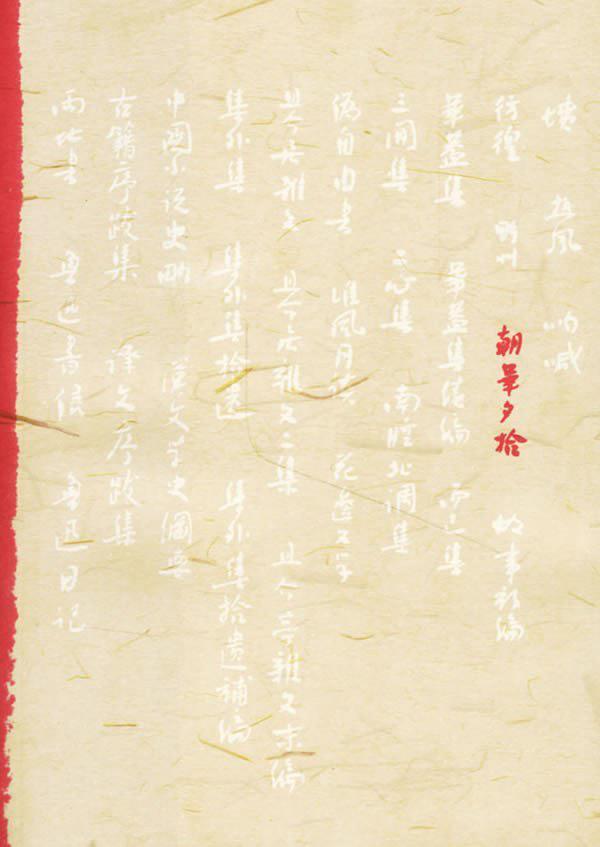 墳 热风 呐喊
彷徨 野艸 朝華夕拾 故事新编
華蓋集 華蓋集续编 而已集
三闲集 二心集 南腔北调集
偽自由書 准风月谈 花边文学
且介亭雜文 且介亭雜文二集 且介亭雜文末编
集外集 集外集拾遗 集外集拾遗補编
中國小说史略 漢文学史綱要
古籍序跋集 译文序跋集
两地書 魯迅書信 魯迅日记